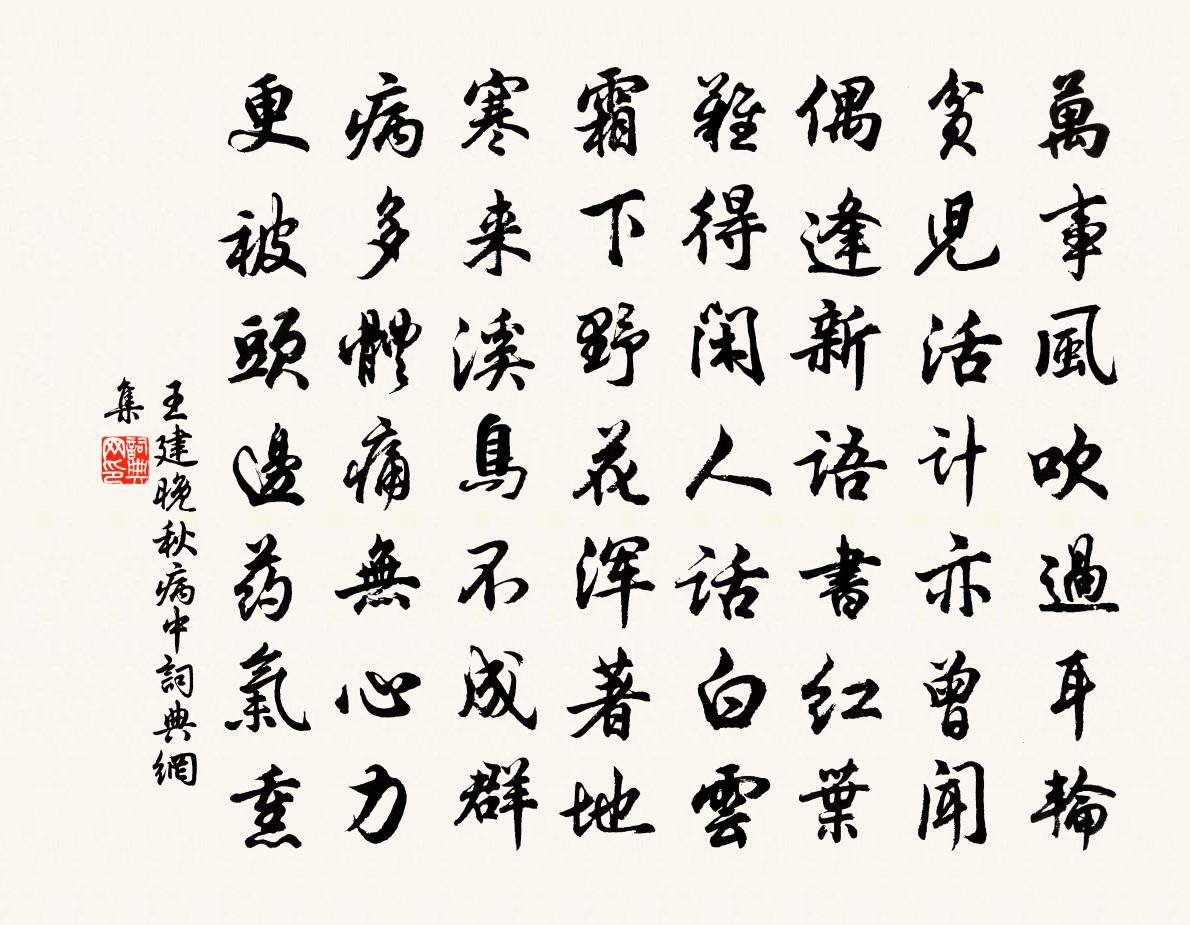 萬事風吹過耳輪
貧児活計亦曾聞
偶逢新語書红葉
難得閑人話白雲
霜下野花浑著地
寒来溪鳥不成群
病多體痛無心力
更被頭邊药氣熏
王建晚秋病中詞典網
集
詞典網印